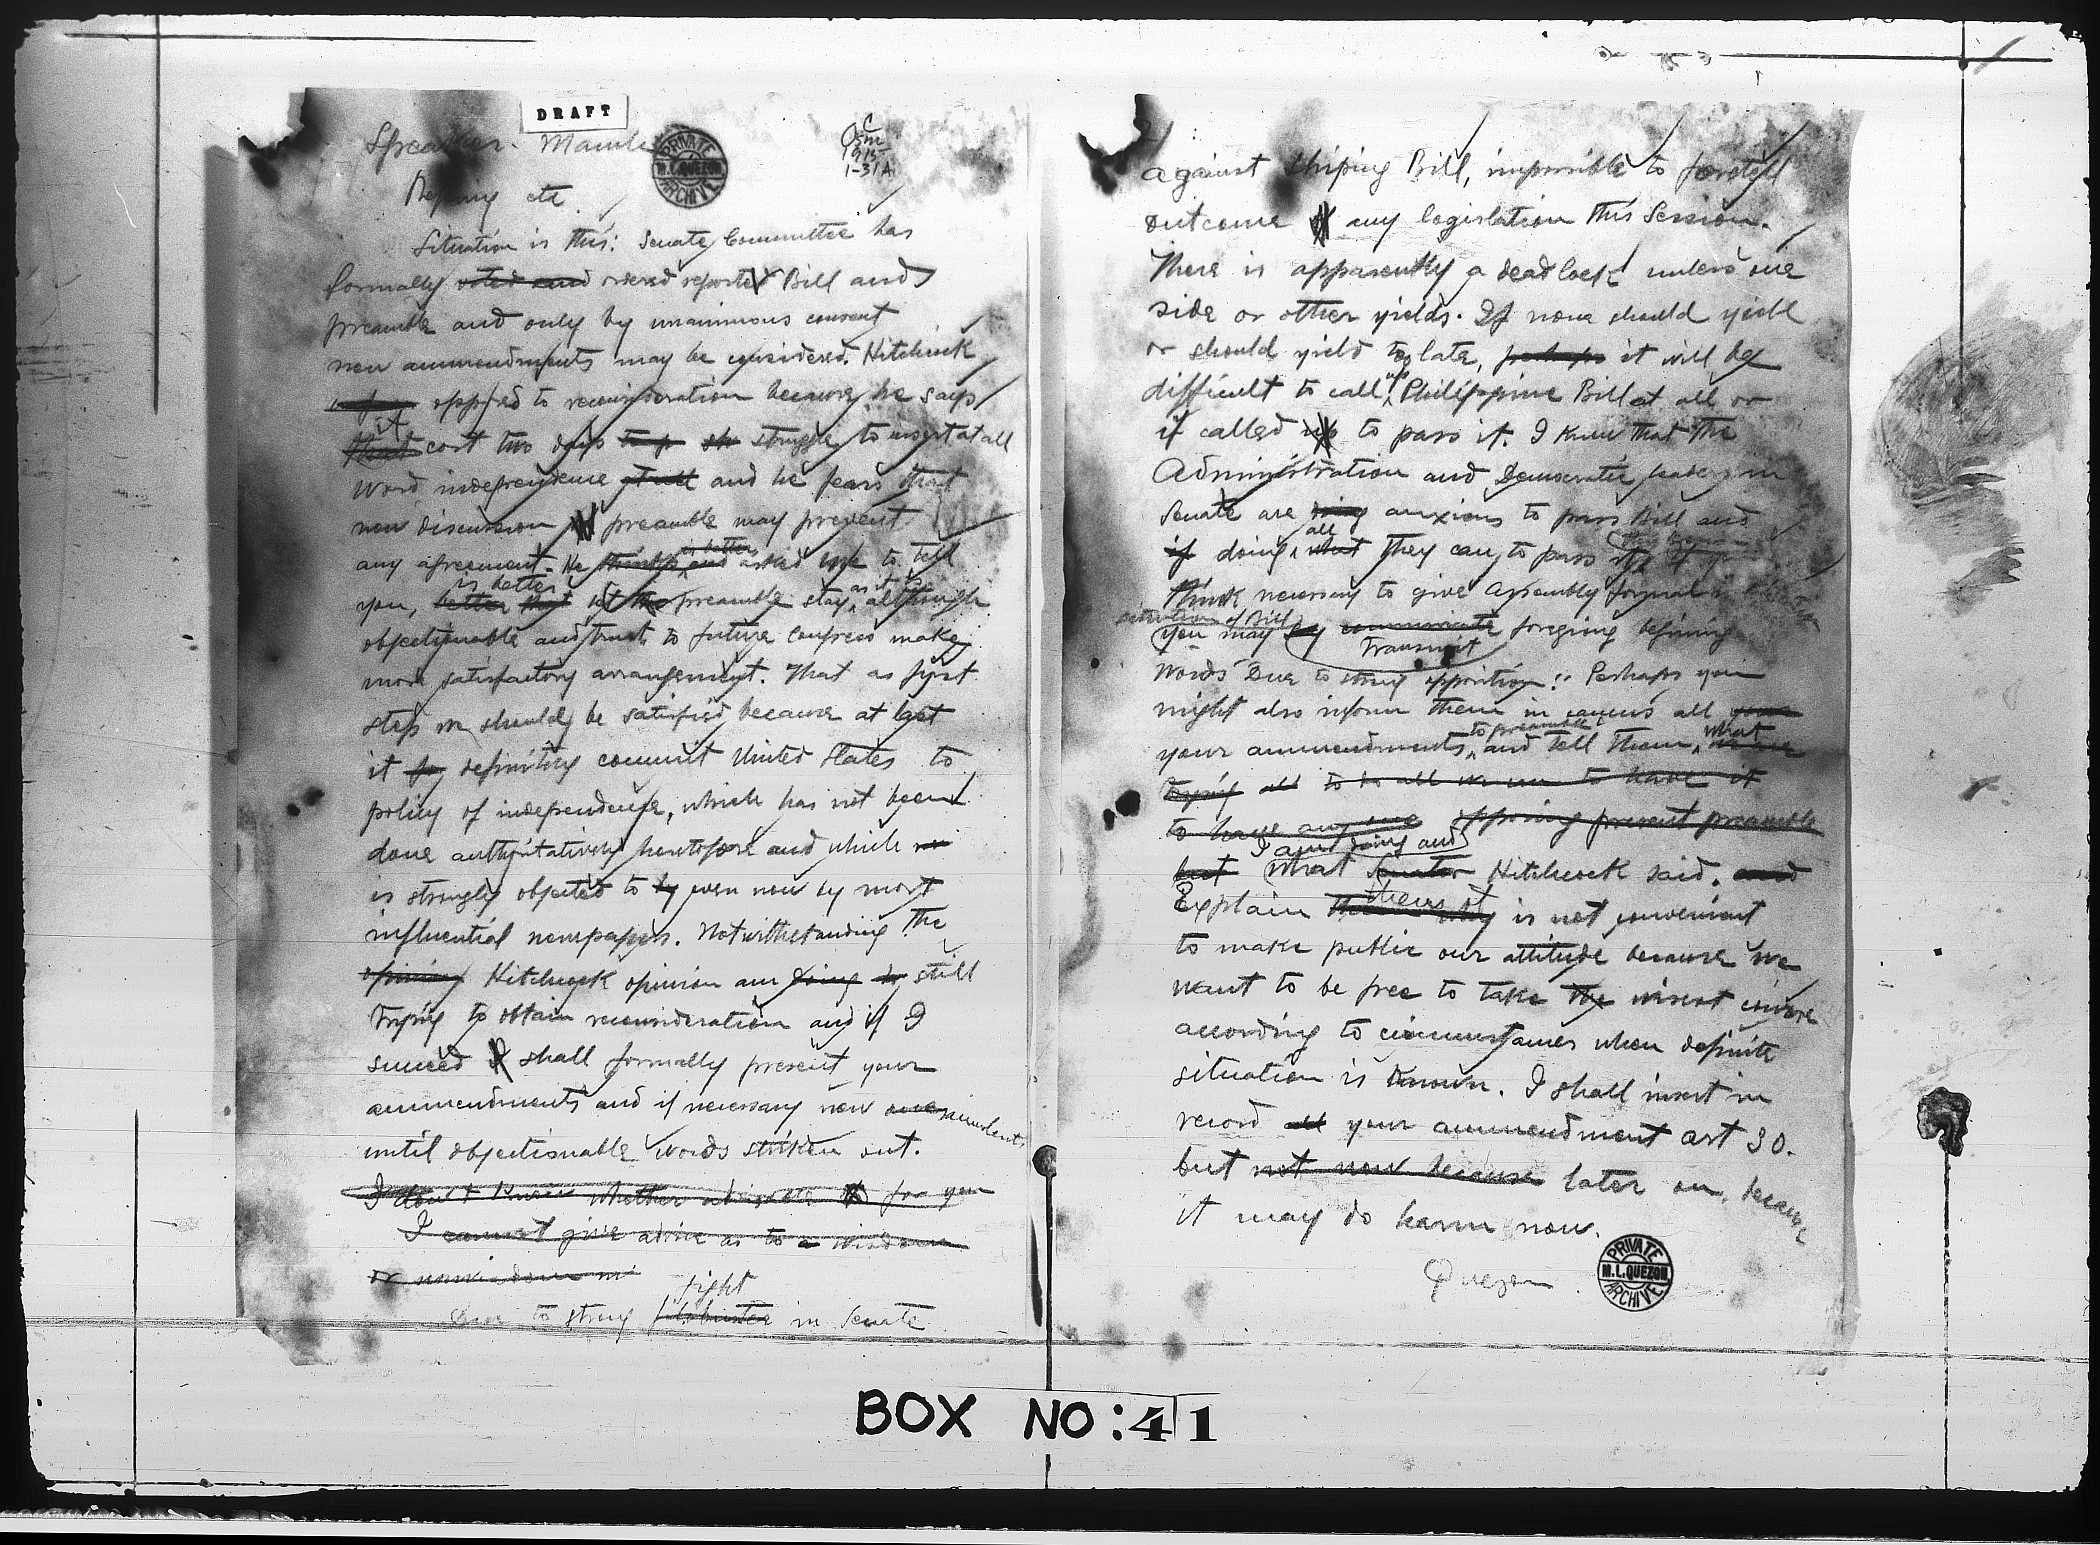 DRAFT
Speaker. Manila
PRIVATE
M.L.QUEZON
ARCHIVE
1915
1-31A
etc
Situation is this: Senate Committee has
formally voted and ordered reported Bill and
preamble and only by unanimous consent
new ammendments may be considered. Hitchcock
opposed to reconsideration because he says
it
that cost two days struggle to insert at all
word independence at all and he fears that
new discussion preamble may prevent
is better
any agreement. He thinks and asked me to tell
is better as it is
you, better that let the preamble stay although
objectionable and trust to future Congress make
more satisfactory arrangement. That as first
step we should be satisfied because at last
it definitely commit United States to
policy of independence, which has not been
done authoritatively heretofore and which
is strongly objected to by even now by most
influential newspapers. Notwithstanding the
opinion Hitchcock opinion am doing still
trying to obtain reconsideration and if I
succeed I shall formally present your
ammendments and if necessary new
until objectionable words striken out.
I don't know whether for you
I cannot give advice as to a wisdom
or
fight
Due to strong filibuster in Senate
against Shiping Bill, impossible to foretell
outcome any legislation this Session.
There is apparently a deadlock unless one
side or other yields. If none should yield
or should yield too late, perhaps it will be
up
difficult to call Philippine Bill at all or
if called up to pass it. I know that the
Administration and Democratic leaders in
Senate are doing anxious to pass Bill and
all
if doing what they can to pass it. If you
think necessary to give Assembly formal
situation of Bill
you may communicate foregoing begining
transmit
words "Due to strong opposition". Perhaps you
might also inform them in caucus all your
to preamble what
your ammendments and tell them, we are
trying all to do all we can to have it
to have any one opposing present preamble
I am doing and
but what Senator Hitchcock said. and
them it
Explain them why is not convenient
to make public our attitude because we
want to be free to take the wisest course
according to circumstances when definite
situation is known. I shall insert in
record all your ammendment art 30.
but not now because later on, because
it may do harm now.
Quezon
PRIVATE
M.L.QUEZON
ARCHIVE
BOX NO: 41